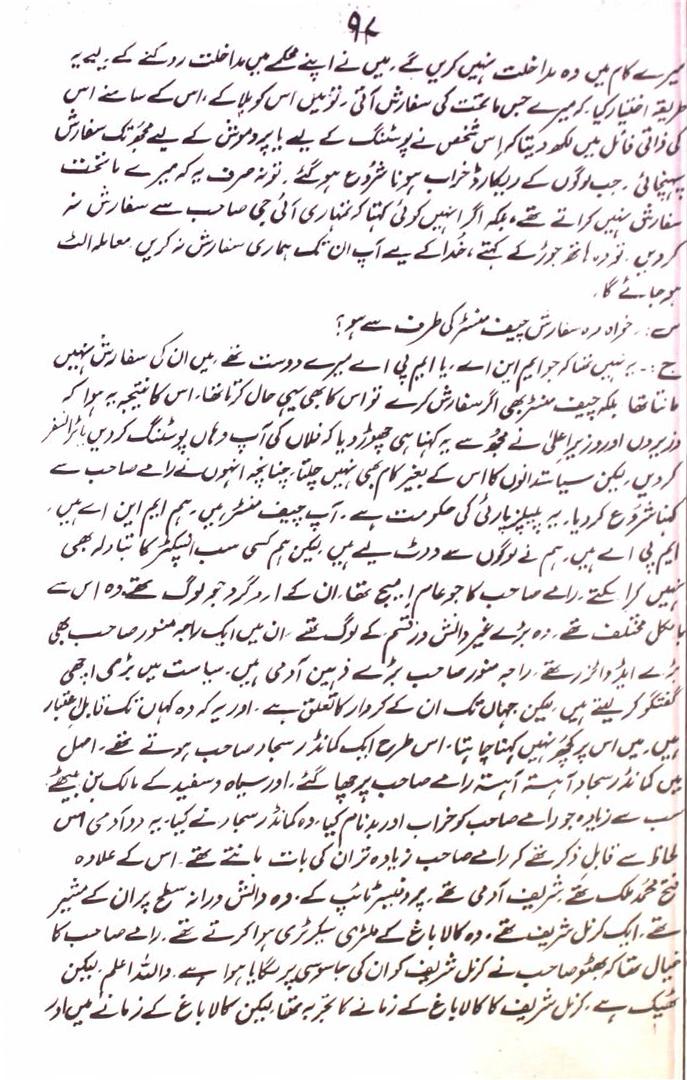 ۹۷
میرے کام میں وہ مداخلت نہیں کریں گے۔ میں نے اپنے محکمے میں مداخلت روکنے کے لیے یہ
طریقہ اختیار کیا۔ کہ میرے جس ماتحت کی سفارش آتی۔ تو میں اس کو بلا کے، اس کے سامنے اس
کی ذاتی فائل میں لکھ دیتا کہ اس شخص نے پوسٹنگ کے لیے یا پروموشن کے لیے مجھ تک سفارش
پہنچائی۔ جب لوگوں کے ریکارڈ خراب ہونا شروع ہو گئے۔ تو نہ صرف یہ کہ میرے ماتحت
سفارش نہیں کراتے تھے، بلکہ اگر انہیں کوئی کہتا کہ تمہاری آئی جی صاحب سے سفارش نہ
کر دیں۔ تو وہ ہاتھ جوڑ کے کہتے، خدا کے لیے آپ ان تک ہماری سفارش نہ کریں۔ معاملہ الٹ
ہو جائے گا۔
س:۔ خواہ وہ سفارش چیف منسٹر کی طرف سے ہو؟
ج:۔ یہ نہیں تھا کہ جو ایم این اے، یا ایم پی اے میرے دوست تھے، میں ان کی سفارش نہیں
مانتا تھا بلکہ چیف منسٹر بھی اگر سفارش کرے تو اس کا بھی یہی حال کرتا تھا۔ اس کا نتیجہ یہ ہوا کہ
وزیروں اور وزیر اعلیٰ نے مجھ سے یہ کہنا ہی چھوڑ دیا کہ فلاں کی آپ وہاں پوسٹنگ کر دیں یا ٹرانسفر
کر دیں۔ لیکن سیاستدانوں کا اس کے بغیر کام بھی نہیں چلتا۔ چنانچہ انہوں نے رامے صاحب سے
کہنا شروع کر دیا۔ یہ پیپلز پارٹی کی حکومت ہے۔ آپ چیف منسٹر ہیں۔ ہم ایم این اے ہیں۔
ایم پی اے ہیں۔ ہم نے لوگوں سے ووٹ لیے ہیں لیکن ہم کسی سب انسپکٹر کا تبادلہ بھی
نہیں کرا سکتے۔ رامے صاحب کا جو عام امیج تھا۔ ان کے ارد گرد جو لوگ تھے، وہ اس سے
بالکل مختلف تھے۔ وہ بڑے غیر دانش ور قسم کے لوگ تھے۔ ان میں ایک راجہ منور صاحب بھی
بڑے ایڈوائزر تھے۔ راجہ منور صاحب بڑے ذہین آدمی ہیں۔ سیاست میں بڑی اچھی
گفتگو کر لیتے ہیں۔ لیکن جہاں تک ان کے کردار کا تعلق ہے۔ اور یہ کہ وہ کہاں تک قابل اعتبار
ہیں۔ میں اس پر کچھ نہیں کہنا چاہتا۔ اس طرح ایک کمانڈر سجاد صاحب ہوتے تھے۔ اصل
میں کمانڈر سجاد آہستہ آہستہ رامے صاحب پر چھا گئے۔ اور سیاہ و سفید کے مالک بن بیٹھے۔
سب سے زیادہ جو رامے صاحب کو خراب اور بدنام کیا، وہ کمانڈر سجاد نے کیا۔ یہ دو آدمی اس
لحاظ سے قابل ذکر تھے کہ رامے صاحب زیادہ تر ان کی بات مانتے تھے۔ اس کے علاوہ
فتح محمد ملک تھے، شریف آدمی تھے۔ پروفیسر ٹائپ کے۔ وہ دانش ورانہ سطح پر ان کے مشیر
تھے۔ ایک کرنل شریف تھے۔ وہ کالا باغ کے ملٹری سیکرٹری ہوا کرتے تھے۔ رامے صاحب کا
خیال تھا کہ بھٹو صاحب نے کرنل شریف کو ان کی جاسوسی پر لگایا ہوا ہے۔ واللہ اعلم۔ لیکن
ٹھیک ہے۔ کرنل شریف کا کالا باغ کے زمانے کا تجربہ تھا۔ لیکن کالا باغ کے زمانے میں اور